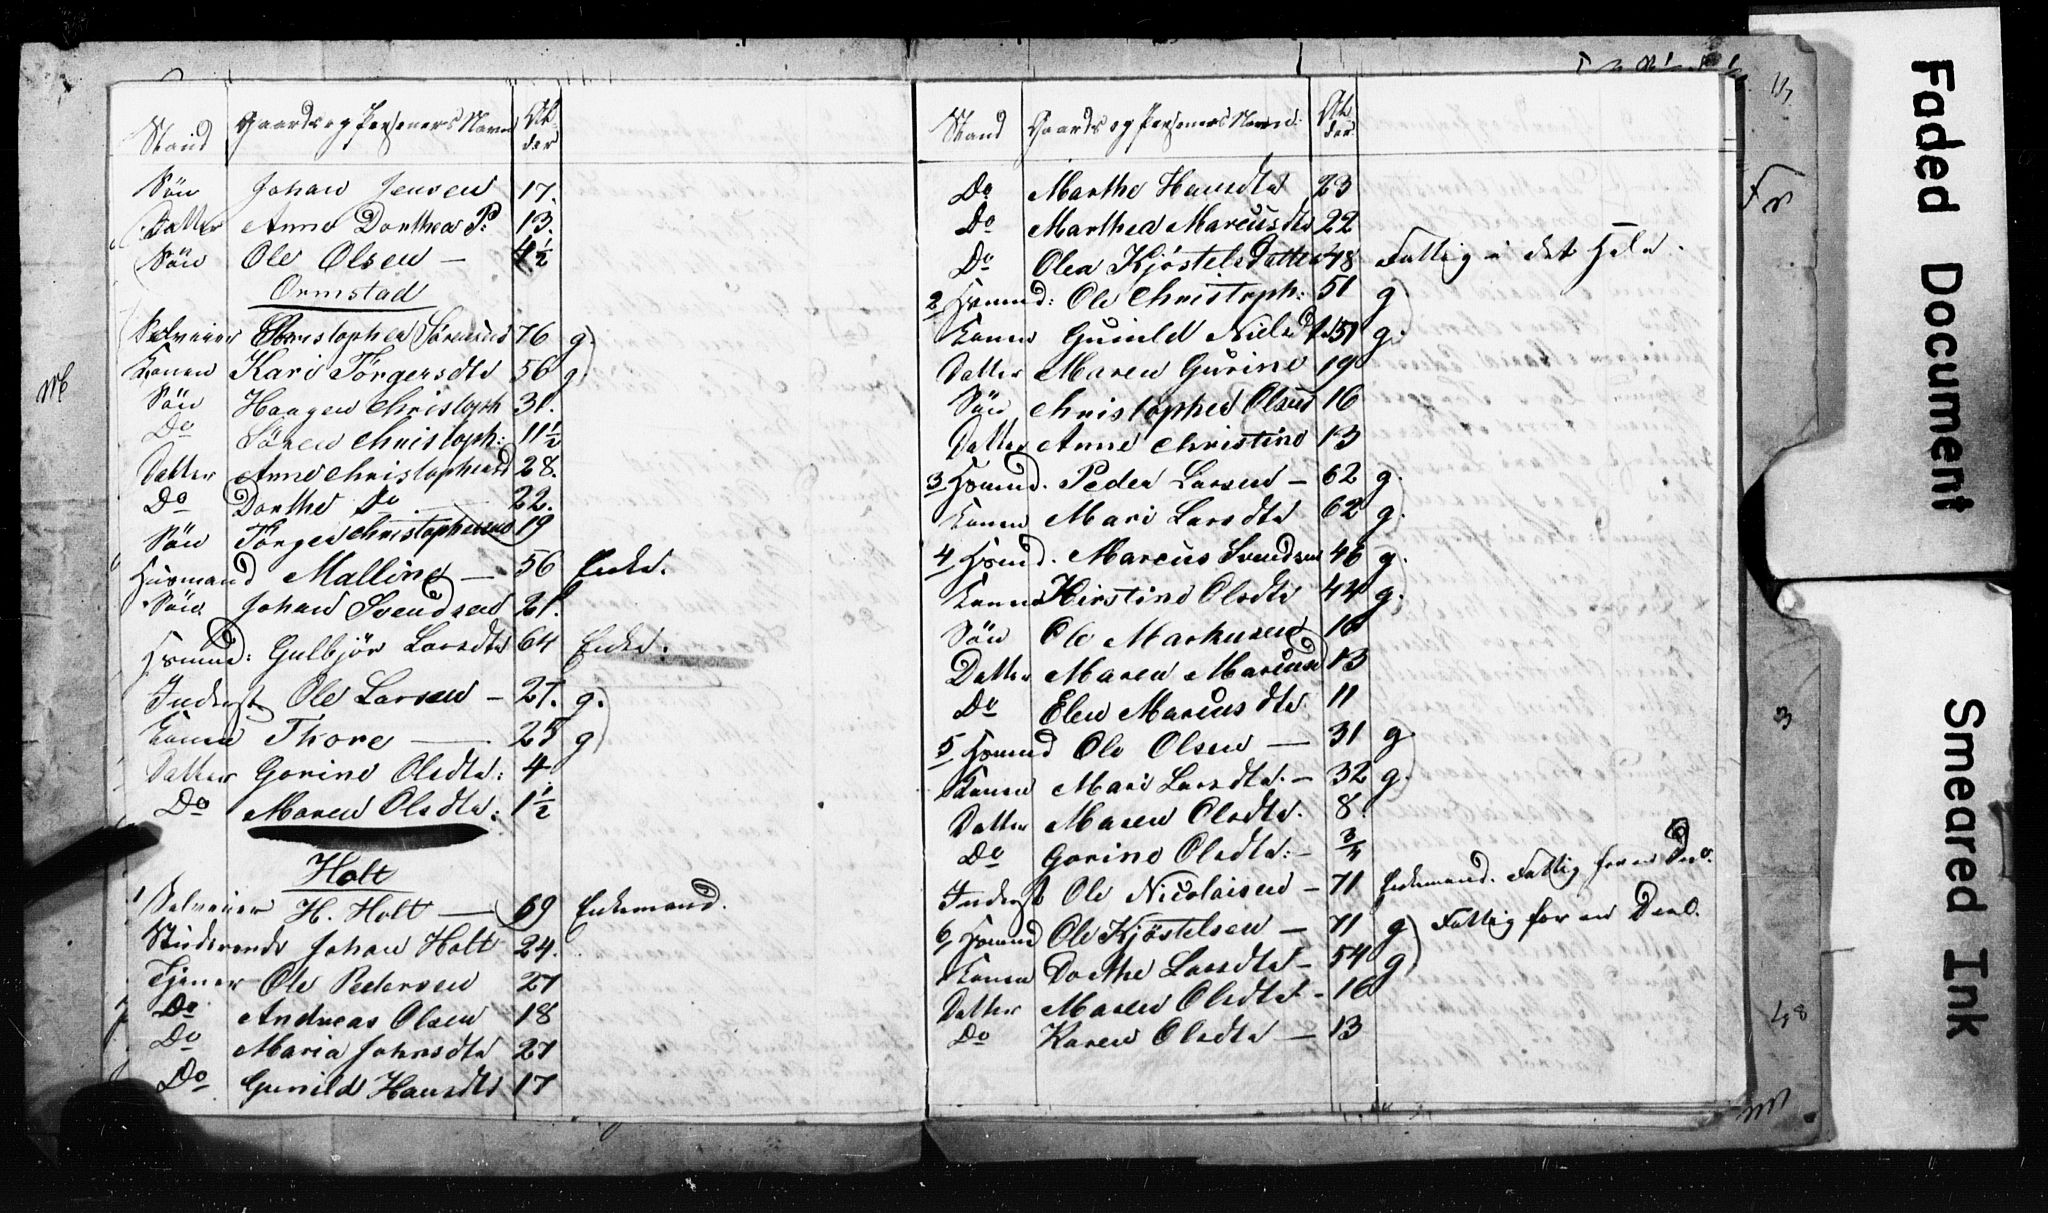 Stand Gaards og Personers Navne Alder
Sön Johan Jensen 17.
Datter Anne Dorthea P: 13.
Sön Ole Olsen — 4½
Ormstad
Selveier Christopher Sörensen 76 g.
Konen Kari Törgersdtr 56 g.
Sön Haagen Christoph 31.
Do Sören Christoph: 11½
Datter Anne Christophersd 28.
Do Dorthe Do — 22.
Sön Törger Christophersen 19
Husmand Malline — 56 Enke.
Sön Johan Svendsen 21.
Hsmnd: Gulbjör Larsdtr 64 Enke.
Inderst Ole Larsen — 27. g.
Konen Thore — 25 g
Datter Gorine Olsdtr: 4.
Do Maren Olsdtr: 1½
Holt
1 Selveier H. Holt — 69 Enkemand.
Studerende Johan Holt 24.
Tjener Ole Pedersen 27
Do Andreas Olsen 18
Do Maria Johnsdtr 27
Do Gunild Hansdtr 17
Stand Gaards og Personers Navne: Alder
Do Marthe Hansdtr 23
Do Marthea Marcusdtr 22
Do Olea Kjöstelsdatter 48 Fattig i det Hele.
2 Hsmnd: Ole Christoph: 51 g
Konen Gunild Nielsdtr 51 g.
Datter Maren Gurine 19
Sön Christopher Olsen 16
Datter Anne Christine 13
3 Hsmnd. Peder Larsen — 62 g.
Konen Mari Larsdtr 62 g.
4 Hsmnd. Marcus Svendsen 46 g.
Konen Kirstine Olsdtr 44 g.
Sön Ole Markusen 16
Datter Maren Marcusd 13
Do Elen Marcusdtr 11
5 Hsmnd Ole Olsen — 31 g.
Konen Mari Larsdtr. — 32 g.
Datter Maren Olsdtr. 8.
Do Gorine Olsdtr: — ¾
Inderst Ole Nicolaisen — 71 Enkemand. Fattig for en Deel.
6 Hsmnd Ole Kjöstelsen — 71 g Fattig for en Deel.
Konen Dorthe Larsdtr — 54 g
Datter Maren Olsdtr. — 16
Do Karen Olsdtr — 13
Faded Document
Smeared Ink